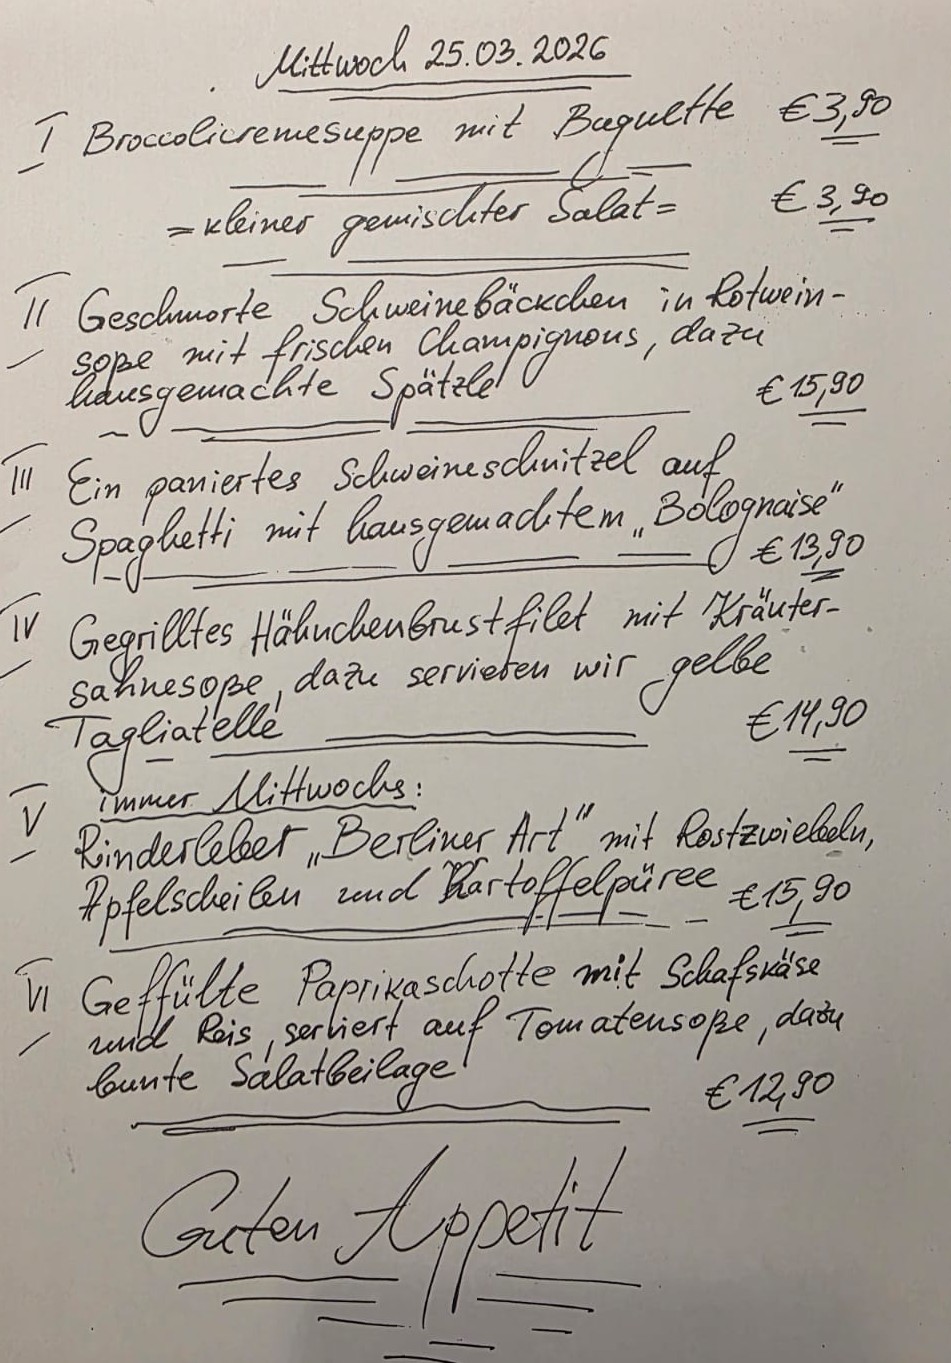 Mittwoch 25.03.2026
I Broccolicremesuppe mit Baguette € 3,90
= kleiner gemischter Salat = € 3,90
II Geschmorte Schweinebäckchen in Rotwein-
soße mit frischen Champignons, dazu
hausgemachte Spätzle € 15,90
III Ein paniertes Schweineschnitzel auf
Spaghetti mit hausgemachtem „Bolognaise"
€ 13,90
IV Gegrilltes Hähnchenbrustfilet mit Kräuter-
sahnesoße, dazu servieren wir gelbe
Tagliatelle € 14,90
immer Mittwochs:
V Rinderleber „Berliner Art" mit Rostzwiebeln,
Apfelscheiben und Kartoffelpüree € 15,90
VI Geffülte Paprikaschotte mit Schafskäse
und Reis, serviert auf Tomatensoße, dazu
bunte Salatbeilage € 12,90
Guten Appetit